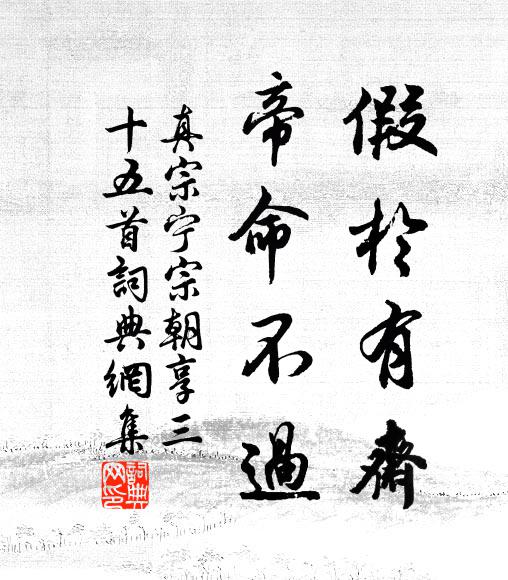 假於有齋
帝命不過
真宗宁宗朝享三
十五首詞典網集
詞典
网印